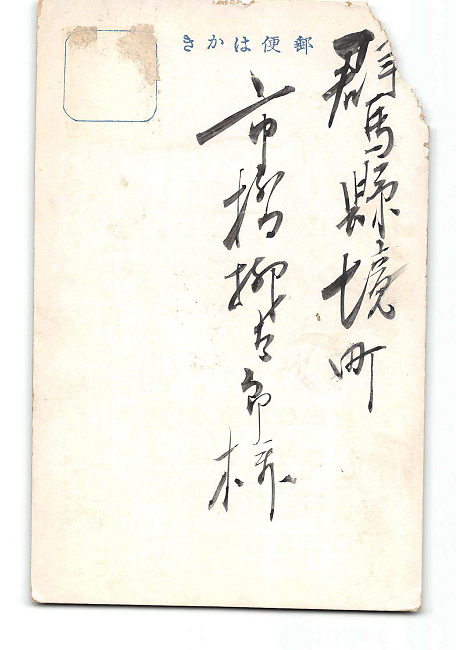 きかは便郵
群馬縣境町
市橋柳吉郎様